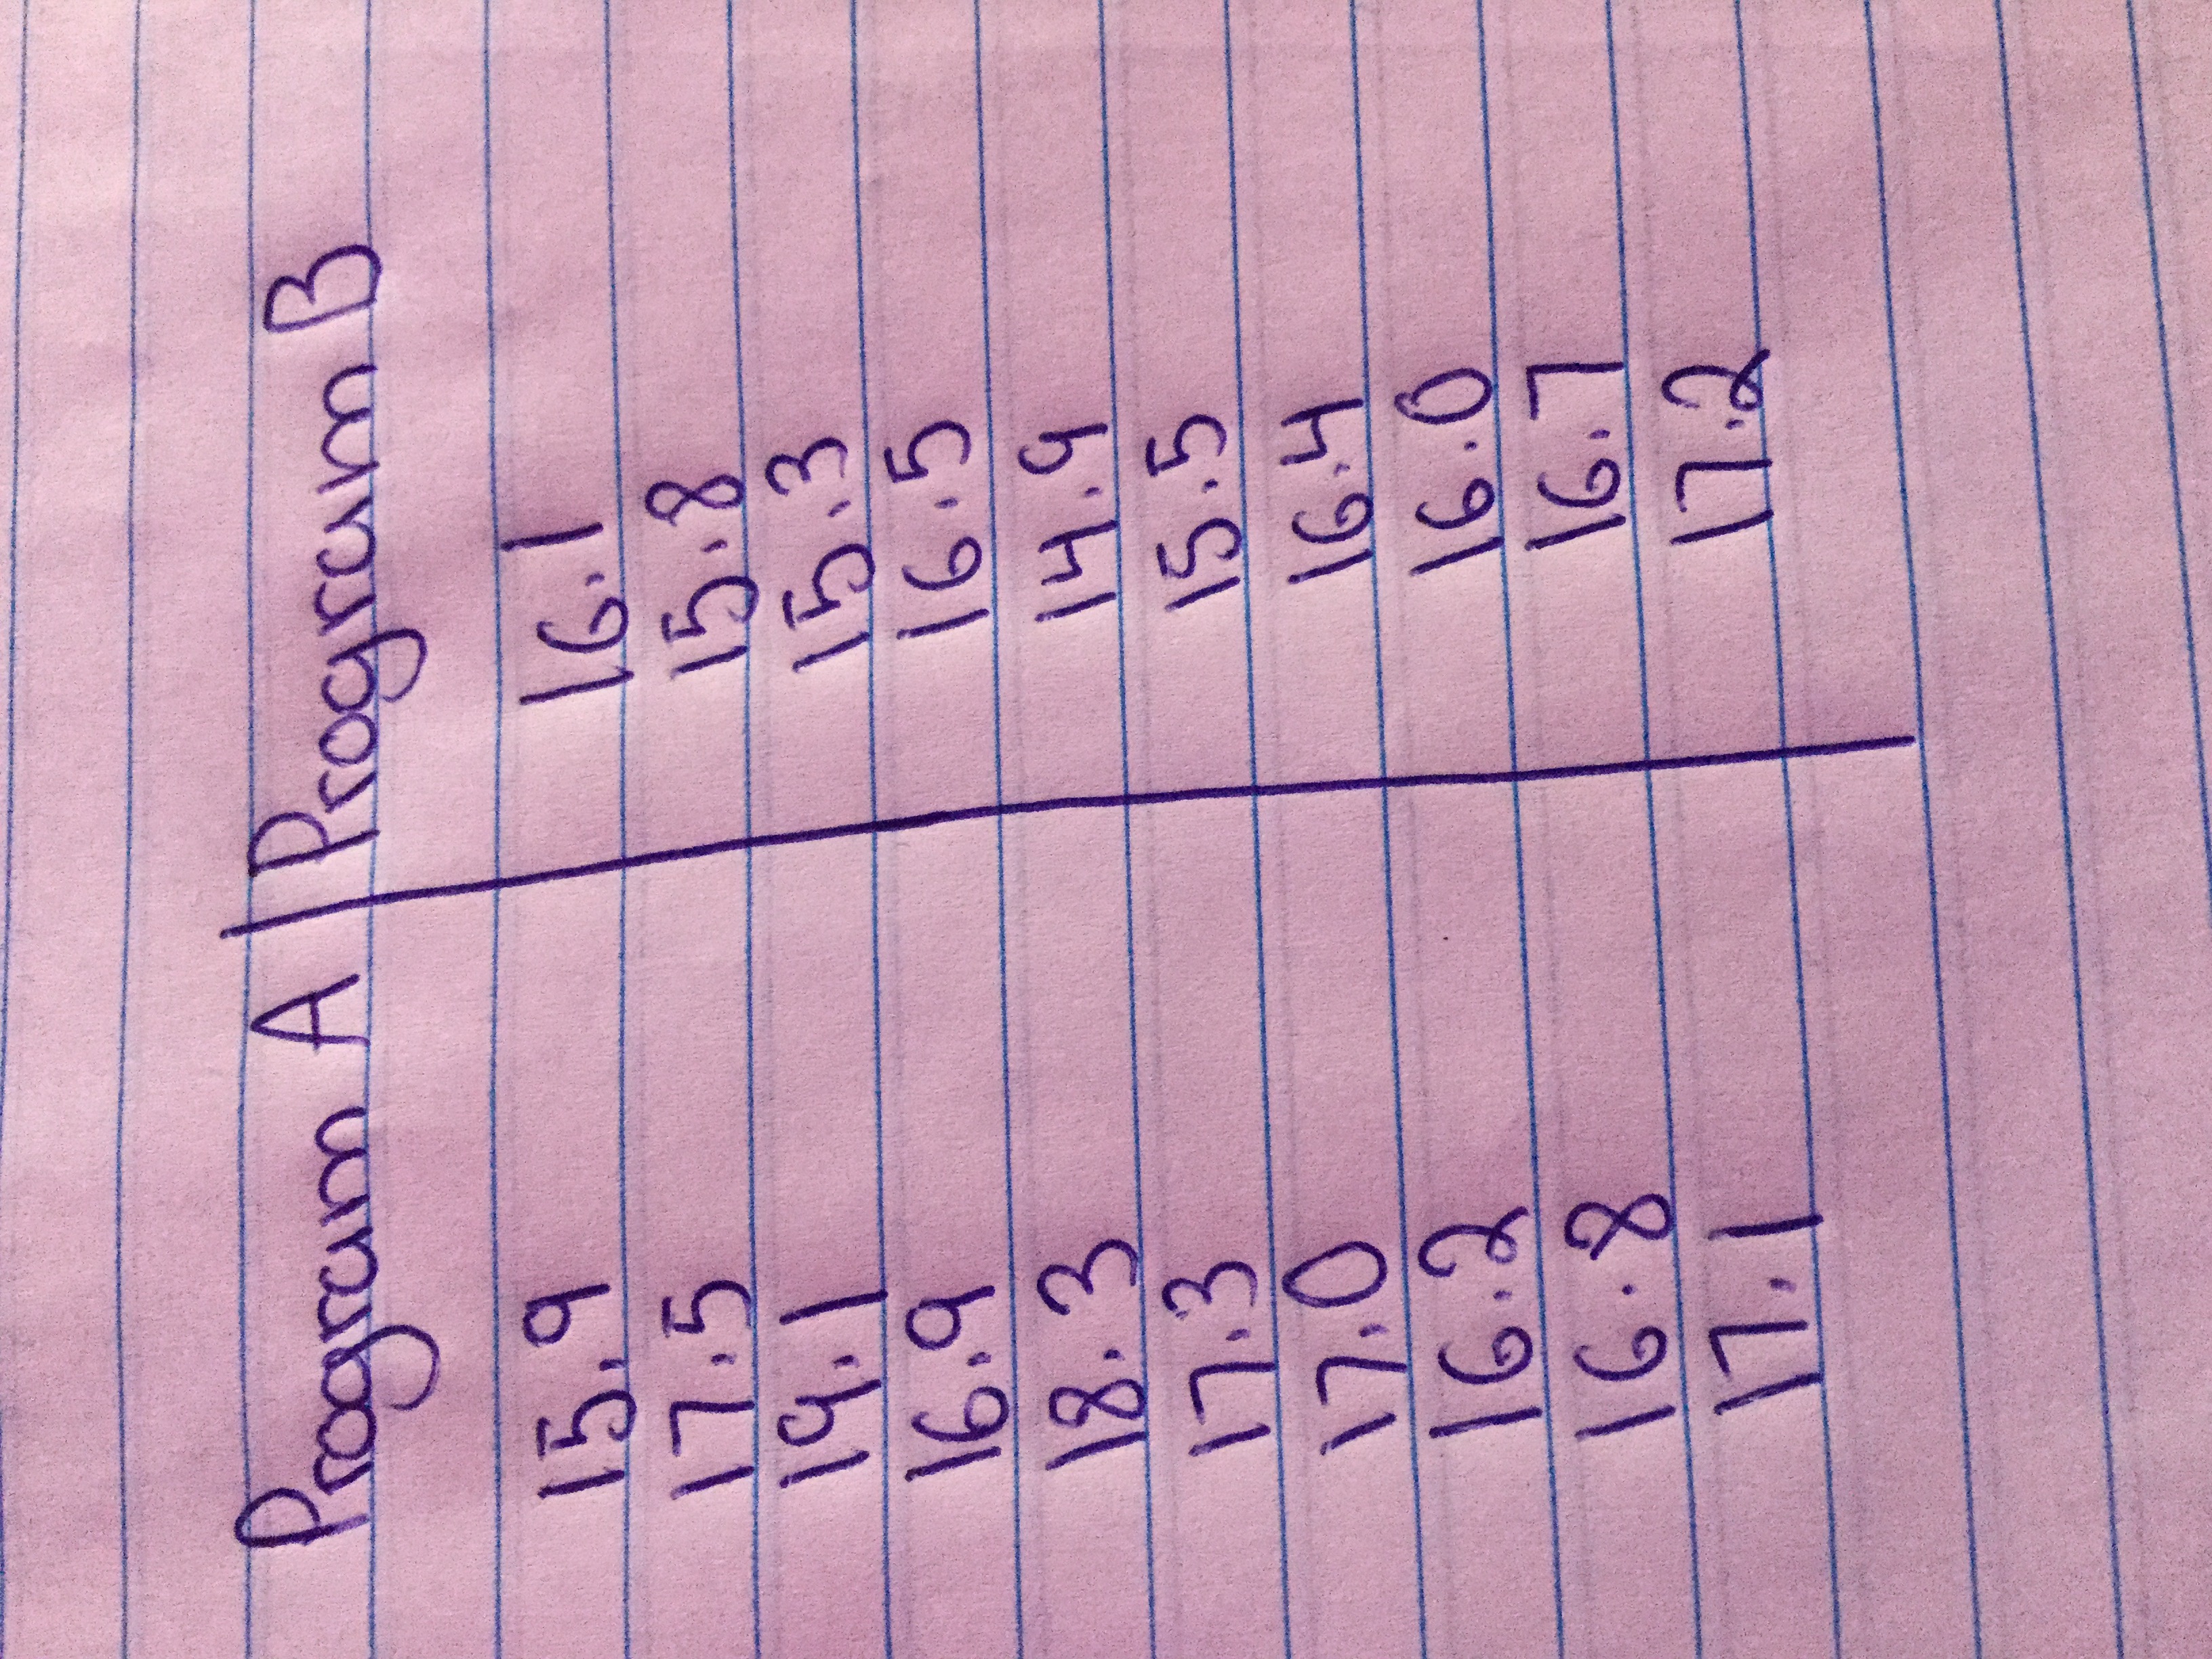 Program A | Program B
15.9 16.1
17.5 15.8
19.1 15.3
16.9 16.5
18.3 14.9
17.3 15.5
17.0 16.4
16.2 16.0
16.8 16.7
17.1 17.2